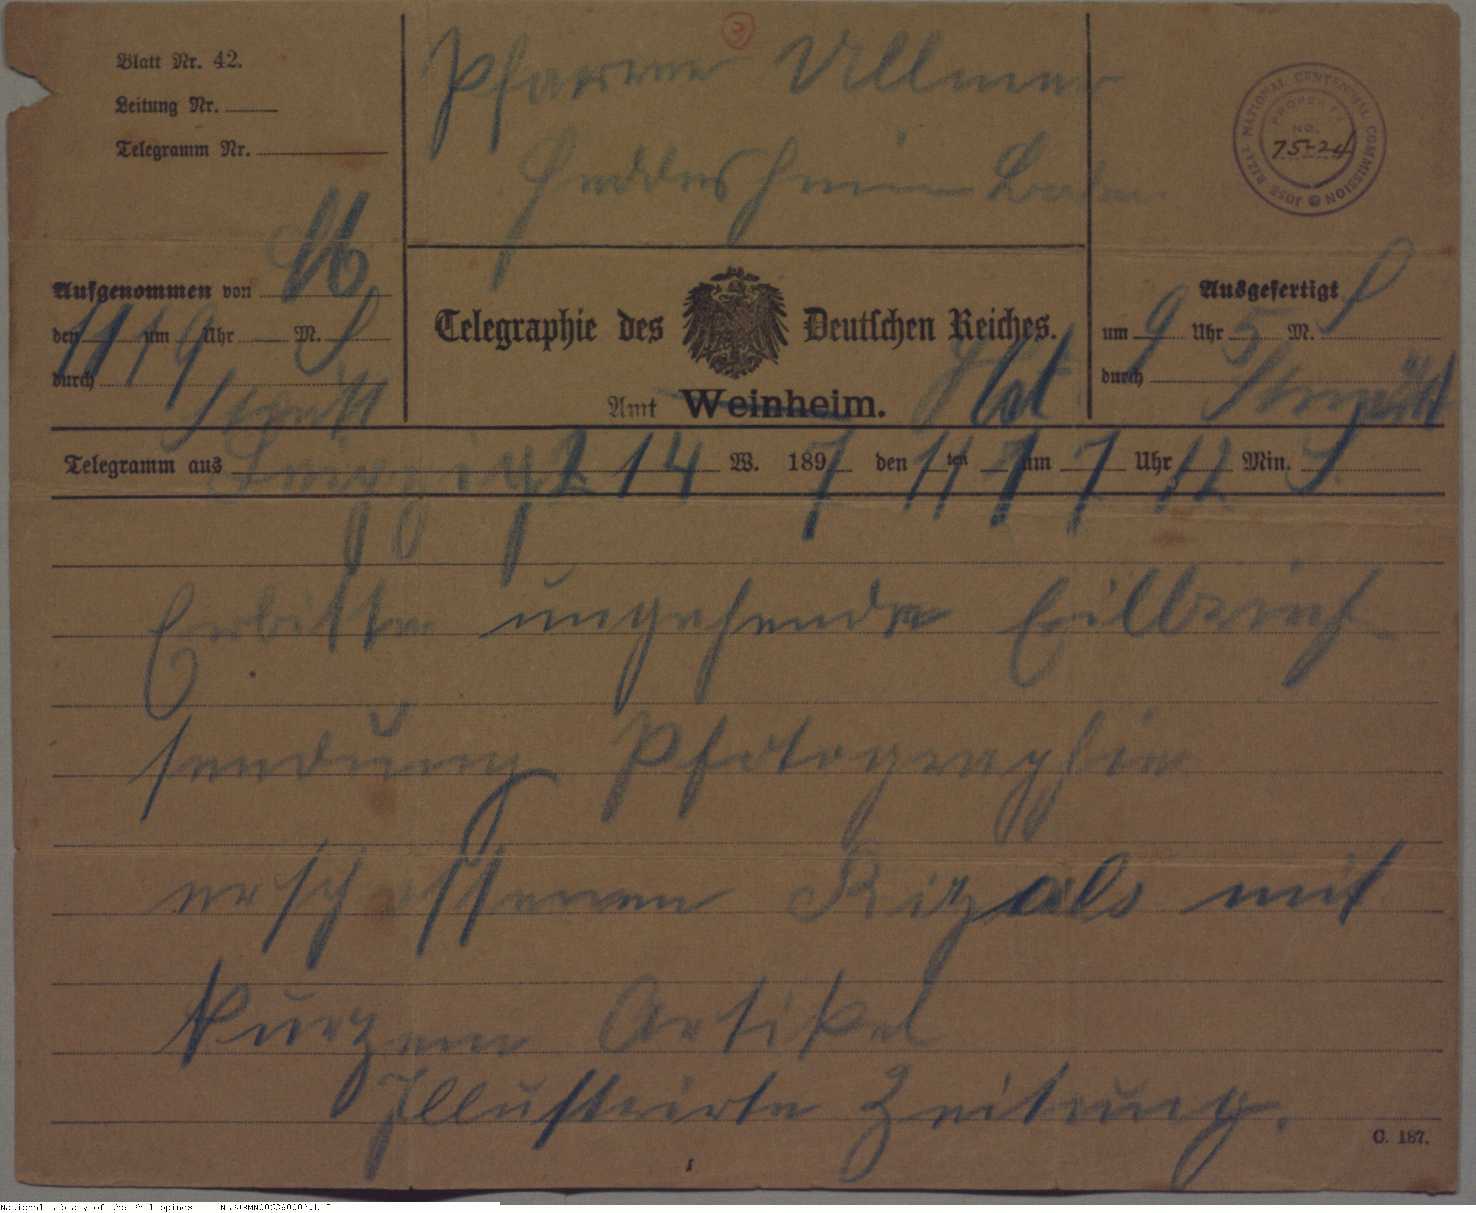 Blatt Nr. 42.
Leitung Nr.
Telegramm Nr.
Pfarrer Ullmer
Heddesheim Baden
JOSE RIZAL NATIONAL CENTENNIAL COMMISSION
PROPERTY
NO.
75-24
Aufgenommen von
den 11 1 um 9 Uhr M. S
durch
Telegraphie des Deutschen Reiches.
Amt Weinheim.
Ausgefertigt
um 9 Uhr 5 M. S
durch
Telegramm aus Leipzig 14 W. 1897 den 11 ten 1 um 7 Uhr 12 Min. S
Erbitte umgehende Eilbrief
sendung Photographie
erschossenen Rizals mit
kurzem Artikel
Illustrirte Zeitung.
C. 187.
National Library of the Philippines